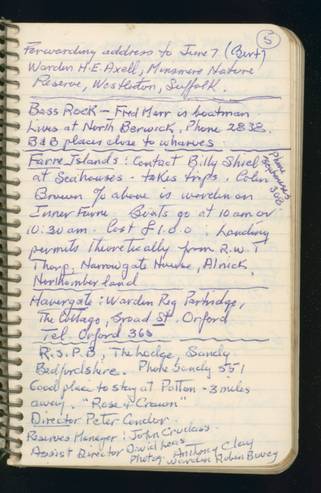 5
Forwarding address to June 7 (Bert)
Warden H.E. Axell, Minsmere Nature
Reserve, Westleton, Suffolk.
Bass Rock - Fred Marr is boatman
Lives at North Berwick, Phone 2838.
B&B places close to wharves
Farne Islands: Contact Billy Shiel
at Seahouses - takes trips. Colin
Phone Seahouses 308
Brown % above is warden on
Inner Farne Boats go at 10 am or
10:30 am. Cost £1.0.0. Landing
permits theoretically from R.W.T
Thorp, Narrowgate House, Alnick,
Northumberland
Havergate: Warden Reg Partridge,
The Cottage, Broad St. Orford
Tel. Orford 365
R.S.P.B., The Lodge, Sandy
Bedfordshire. Phone Sandy 551
Good place to stay at Potton - 3 miles
away. "Rose & Crown"
Director Peter Conder.
Reserves Manager: John Crudass.
Assist Director David Lea
Photog. Anthony Clay
Warden Robin